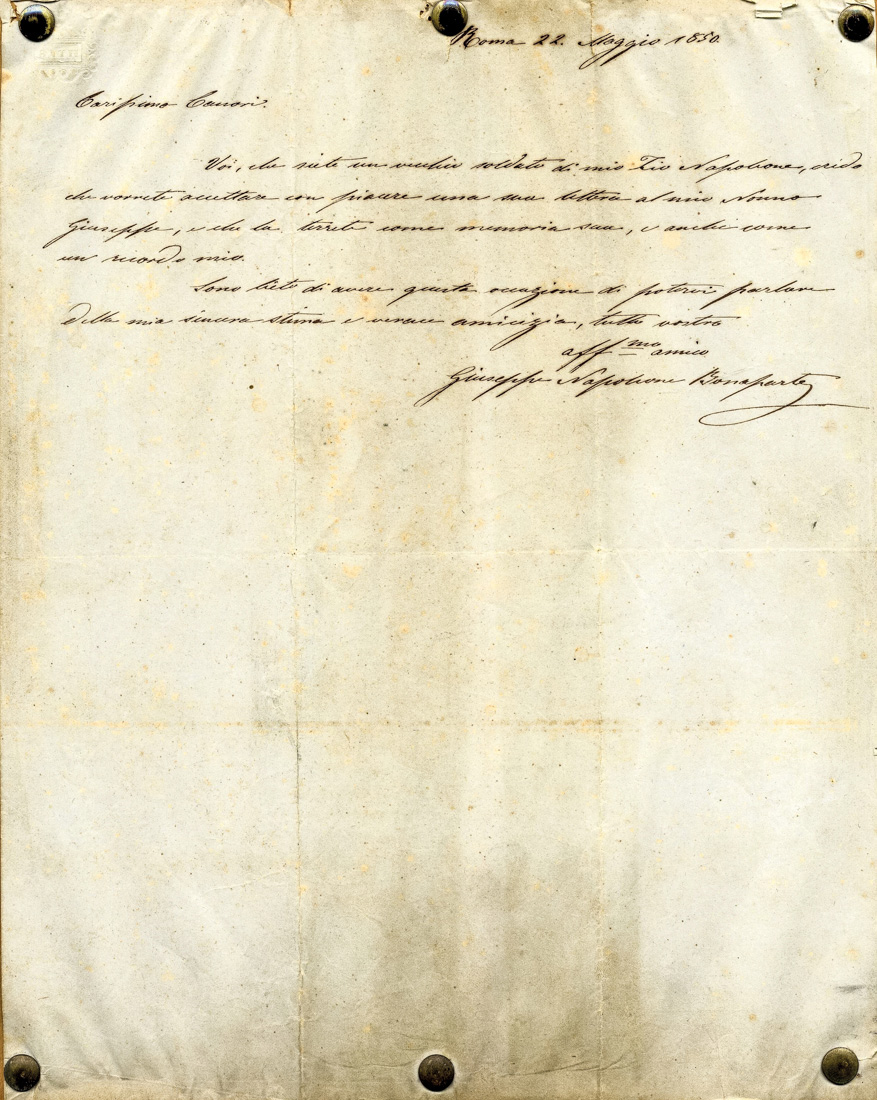 Roma 22. Maggio 1850.
Carissimo Cannori.
Voi, che siete un vecchio soldato di mio Zio Napoleone, credo
che vorrete accettare con piacere una sua lettera al mio Nonno
Giuseppe, e che la terrete come memoria sua, e anche come
un ricordo mio.
Sono lieto di avere questa occazione di potervi parlare
della mia sincera stima e verace amicizia, tutto vostro
aff.mo amico
Giuseppe Napoleone Bonaparte